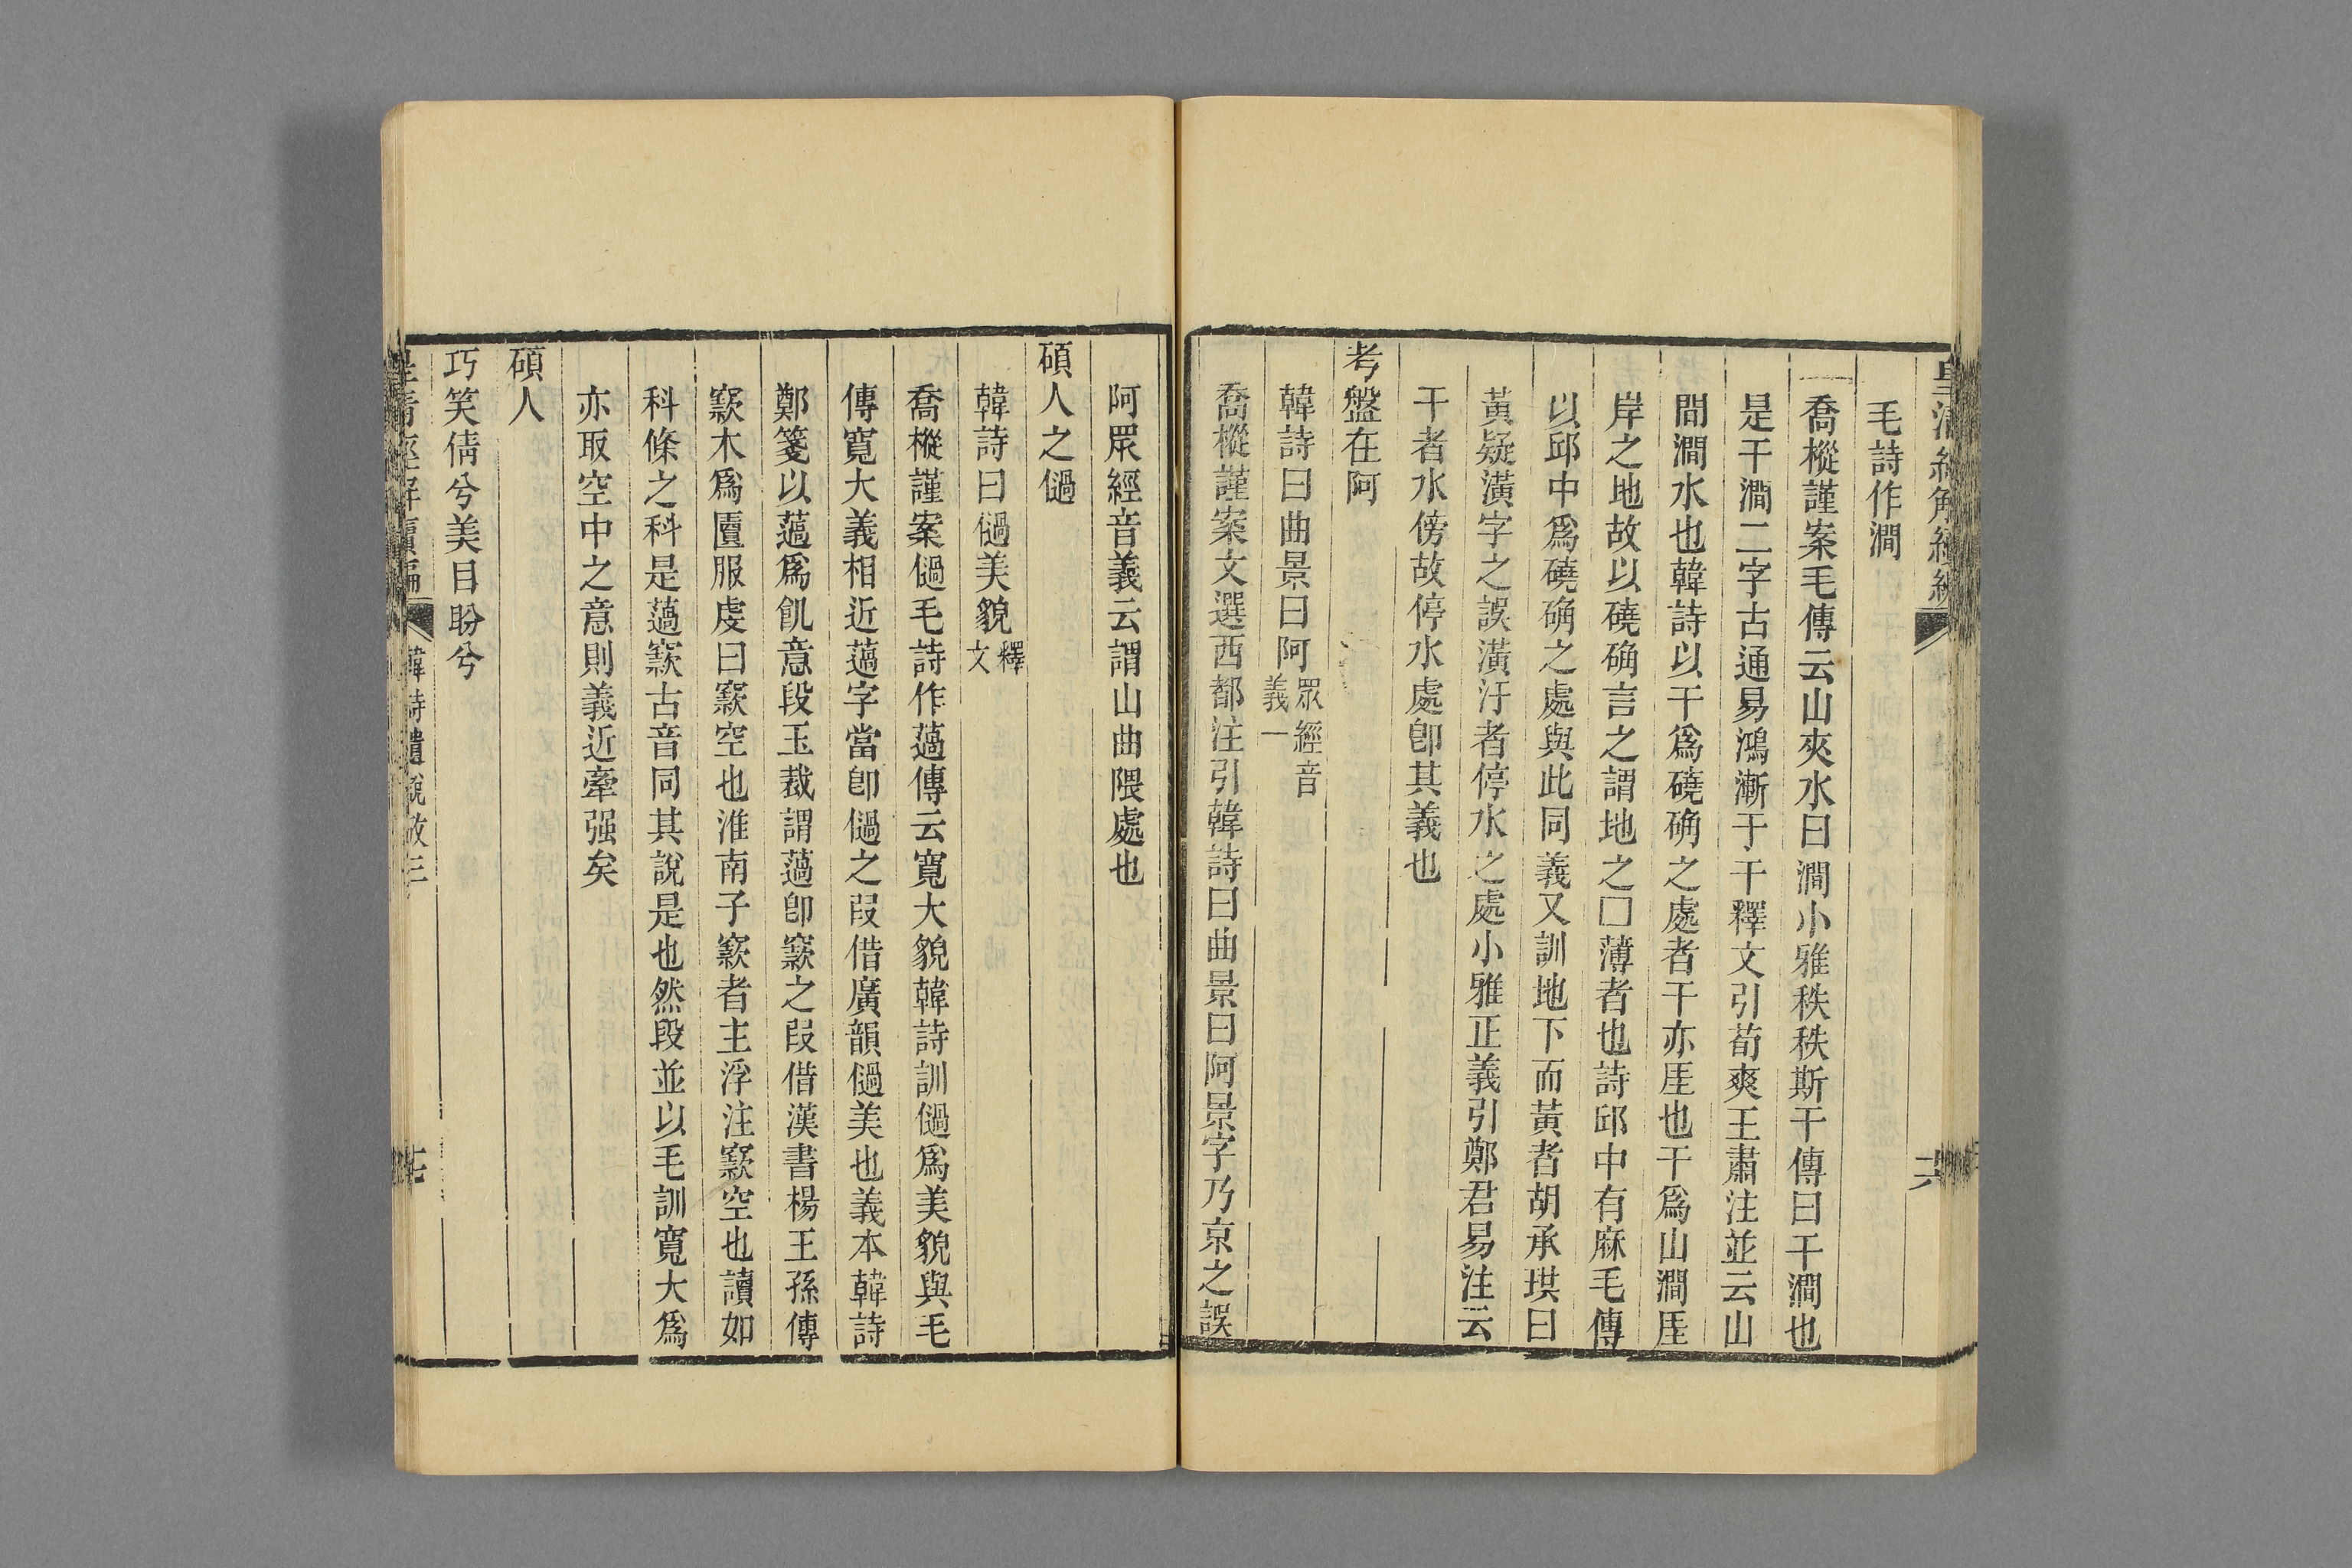 毛詩作澗
喬樅謹案毛傳云山夾水曰澗小雅秩秩斯干傳曰干澗也
是干澗二字古通易鴻漸于干釋文引荀爽王肅注並云山
間澗水也韓詩以干爲磽确之處者干亦厓也干爲山澗厓
岸之地故以磽确言之謂地之□薄者也詩邱中有麻毛傳
以邱中爲磽确之處與此同義又訓地下而黃者胡承珙曰
黃疑潢字之誤潢汙者停水之處小雅正義引鄭君易注云
干者水傍故停水處卽其義也
考盤在阿
韓詩曰曲景曰阿眾經音義一
喬樅謹案文選西都注引韓詩曰曲景曰阿景字乃京之誤
阿眾經音義云謂山曲隈處也
碩人之𠌗
韓詩曰𠌗美貌釋文
喬樅謹案𠌗毛詩作薖傳云寬大貌韓詩訓𠌗爲美貌與毛
傳寬大義相近薖字當卽𠌗之叚借廣韻𠌗美也義本韓詩
鄭箋以薖爲飢意段玉裁謂薖卽窾之叚借漢書楊王孫傳
窾木爲匵服虔曰窾空也淮南子窾者主浮注窾空也讀如
科條之科是薖窾古音同其說是也然段並以毛訓寬大爲
亦取空中之意則義近牽强矣
碩人
巧笑倩兮美目盼兮
韓詩遺說攷三